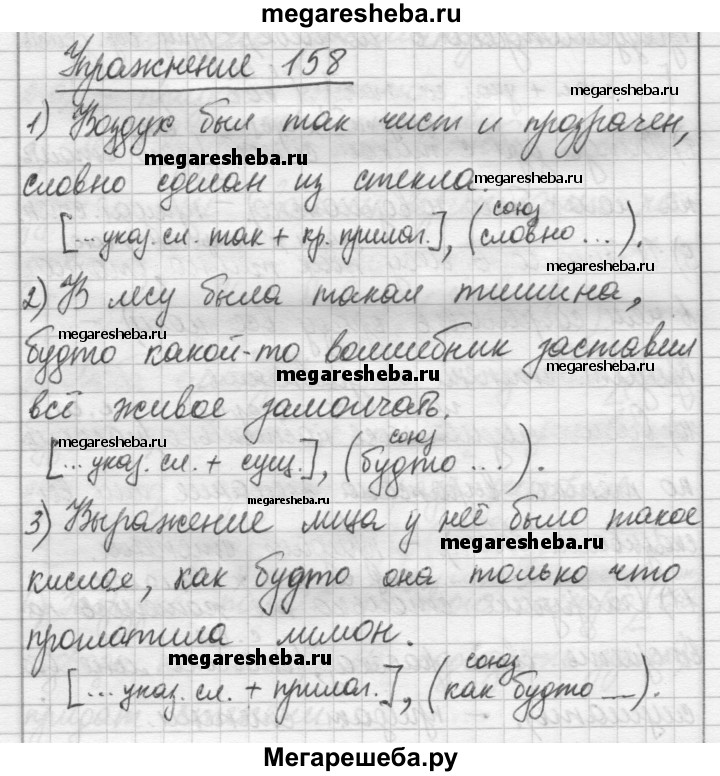 megaresheba.ru
Упражнение 158
megaresheba.ru
1) Воздух был так чист и прозрачен,
megaresheba.ru
словно сделан из стекла.
megaresheba.ru
[... указ. сл. так + кр. прилаг.], (союз словно ...).
megaresheba.ru
2) В лесу была такая тишина,
megaresheba.ru
будто какой-то волшебник заставил
megaresheba.ru
megaresheba.ru
всё живое замолчать.
megaresheba.ru
[... указ. сл. + сущ.], (союз будто ...).
megaresheba.ru
3) Выражение лица у неё было такое
megaresheba.ru
кислое, как будто она только что
проглотила лимон.
megaresheba.ru
[... указ. сл. + прилаг.], (союз как будто ...).
megaresheba.ru
Мегарешеба.ру